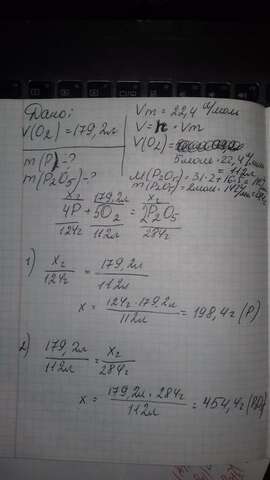 Дано:
V(O₂) = 179,2л
m(P) - ?
m(P₂O₅) - ?
Vm = 22,4 л/моль
V = n · Vm
V(O₂) =
5 моль · 22,4 л/моль
= 112л
M(P₂O₅) = 31·2+16·5 = 142
m(P₂O₅) = 2моль · 142
xг 179,2л xг
4P + 5O₂ = 2P₂O₅
124г 112л 284г
1) xг / 124г = 179,2л / 112л
x = 124г · 179,2л / 112л = 198,4г (P)
2) 179,2л / 112л = xг / 284г
x = 179,2л · 284г / 112л = 454,4г